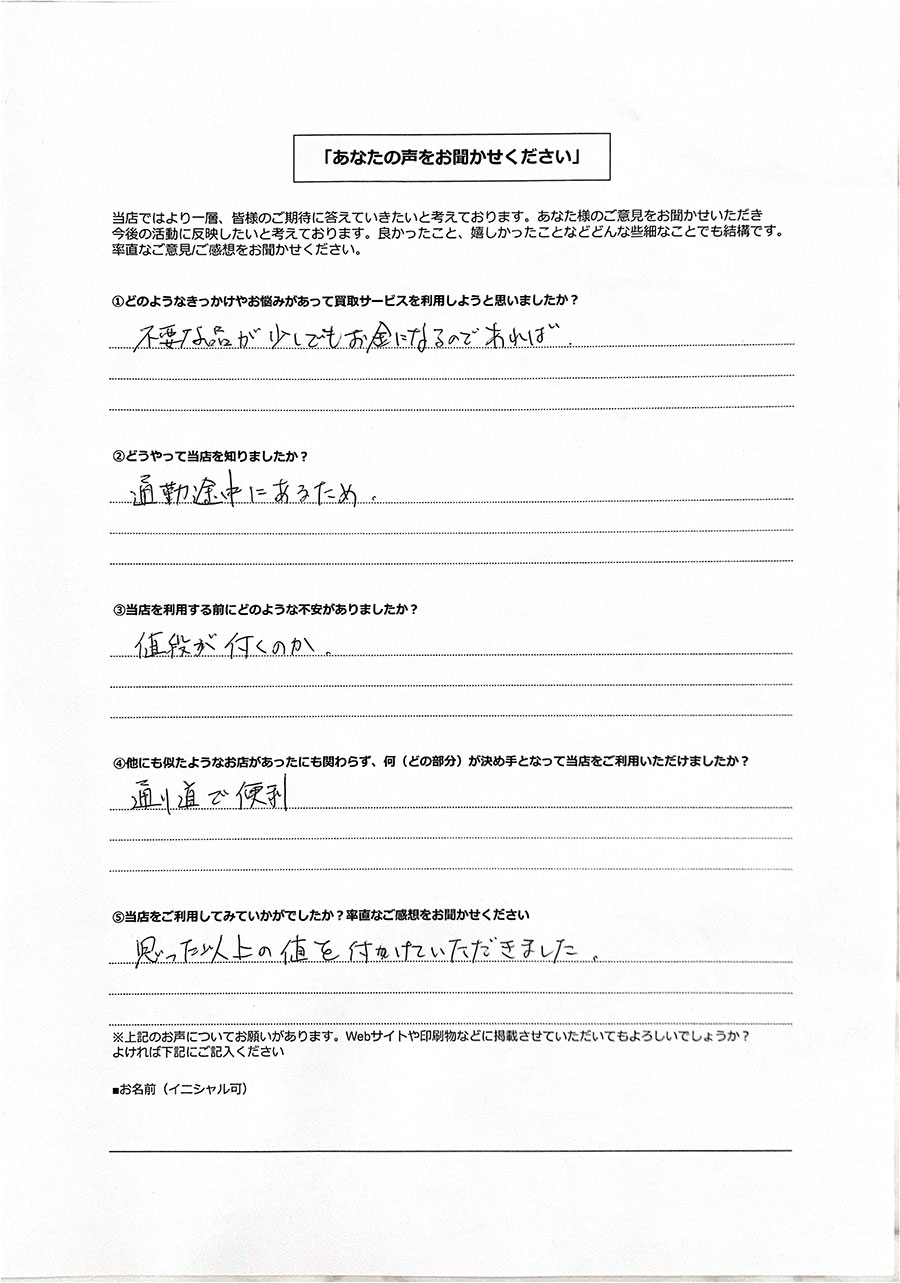 「あなたの声をお聞かせください」
当店ではより一層、皆様のご期待に答えていきたいと考えております。あなた様のご意見をお聞かせいただき
今後の活動に反映したいと考えております。良かったこと、嬉しかったことなどどんな些細なことでも結構です。
率直なご意見/ご感想をお聞かせください。
①どのようなきっかけやお悩みがあって買取サービスを利用しようと思いましたか？
不要な品が少しでもお金になるのであれば.
②どうやって当店を知りましたか？
通勤途中にあるため.
③当店を利用する前にどのような不安がありましたか？
値段が付くのか。
④他にも似たようなお店があったにも関わらず、何（どの部分）が決め手となって当店をご利用いただけましたか？
通り道で便利
⑤当店をご利用してみていかがでしたか？率直なご感想をお聞かせください
思った以上の値を付けていただきました。
※上記のお声についてお願いがあります。Webサイトや印刷物などに掲載させていただいてもよろしいでしょうか？
よければ下記にご記入ください
■お名前（イニシャル可）